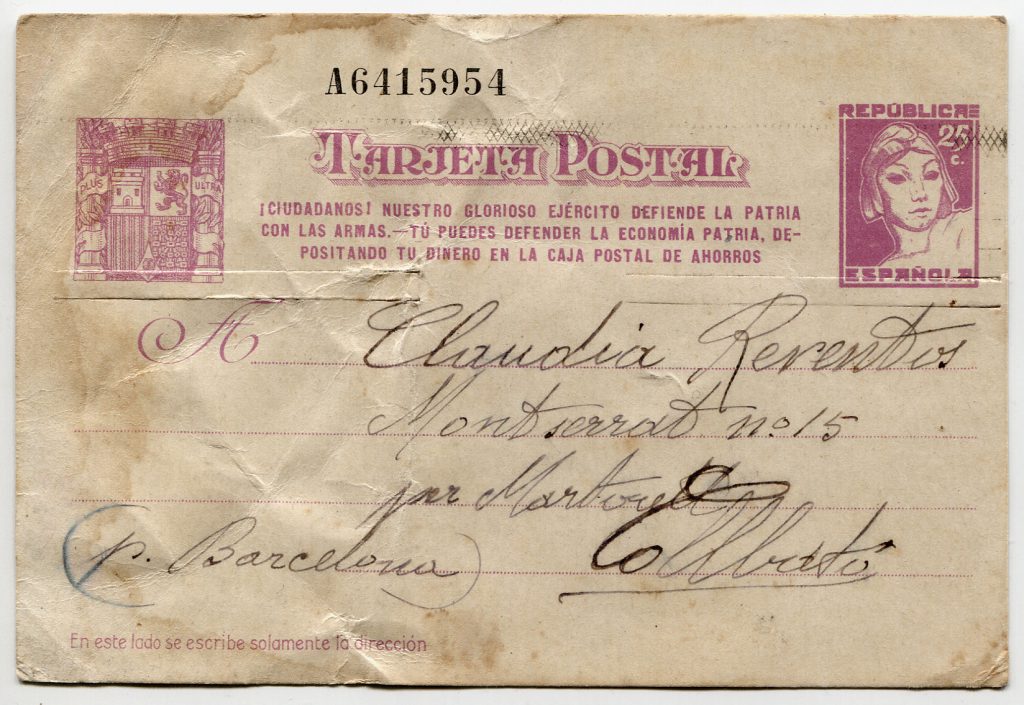 A6415954
TARJETA POSTAL
REPÚBLICA
25 c.
ESPAÑOLA
PLUS ULTRA
¡CIUDADANOS! NUESTRO GLORIOSO EJÉRCITO DEFIENDE LA PATRIA
CON LAS ARMAS.—TÚ PUEDES DEFENDER LA ECONOMÍA PATRIA, DE-
POSITANDO TU DINERO EN LA CAJA POSTAL DE AHORROS
A Claudia Reventos
Montserrat nº 15
per Martorell
Collbató
(p. Barcelona)
En este lado se escribe solamente la dirección